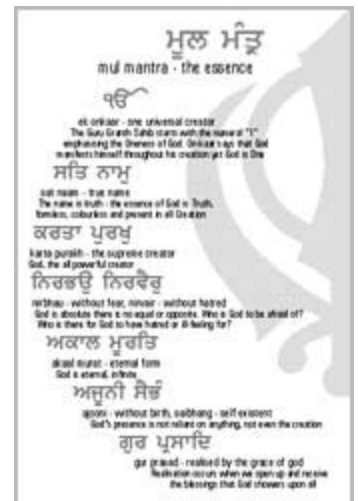 ਮੂਲ ਮੰਤ੍ਰ
mul mantra - the essence
ੴ
ek onkaar - one universal creator
The Guru Granth Sahib starts with the numeral "1"
emphasising the Oneness of God. Onkaar says that God
manifests himself throughout his creation yet God is One
ਸਤਿ ਨਾਮੁ
sat naam - true name
The name is truth - the essence of God is Truth,
formless, colourless and present in all Creation
ਕਰਤਾ ਪੁਰਖੁ
karta purakh - the supreme creator
God, the all powerful creator
ਨਿਰਭਉ ਨਿਰਵੈਰੁ
nirbhau - without fear, nirvair - without hatred
God is absolute there is no equal or opposite. Who is God to be afraid of?
Who is there for God to have hatred or ill-feeling for?
ਅਕਾਲ ਮੂਰਤਿ
akaal murat - eternal form
God is eternal, infinite
ਅਜੂਨੀ ਸੈਭੰ
ajooni - without birth, saibhang - self existent
God's presence is not reliant on anything, not even the creation
ਗੁਰ ਪ੍ਰਸਾਦਿ
gur prasad - realised by the grace of god
Realisation occurs when we open up and receive
the blessings that God showers upon all